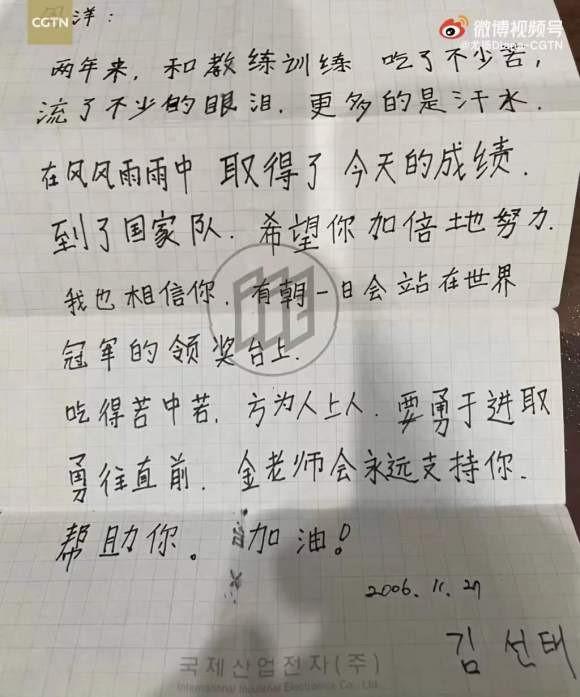 CGTN
微博视频号
洋：
两年来，和教练训练 吃了不少苦，
流了不少的眼泪．更多的是汗水．
在风风雨雨中 取得了今天的成绩．
到了国家队．希望你加倍地努力．
我也相信你．有朝一日会站在世界
冠军的领奖台上．
吃得苦中苦．方为人上人．要勇于进取
勇往直前．金老师会永远支持你．
帮助你。加油！
2006.11.27
김선태
국제산업전자(주)
International Industrial Electronics Co., Ltd.